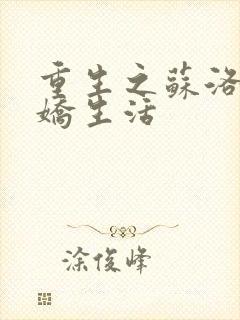 重生之蘇洛
嬌生活
涂俊峰